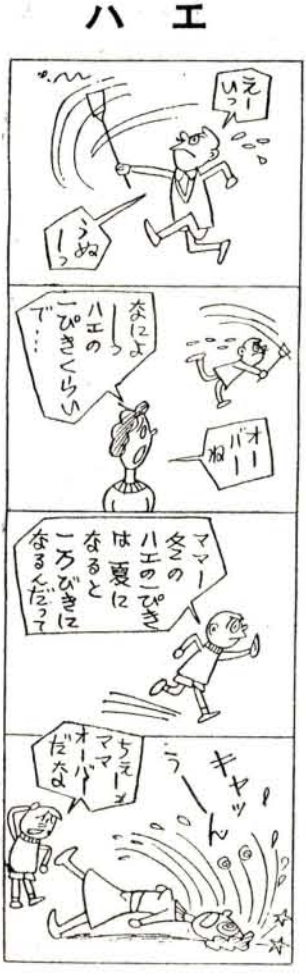 ハエ
えー
いっ
うぬ
ーっ
なによ
ーっ
ハエの
一ぴきくらい
で…
オー
バー
ね
ママー
冬の
ハエの一ぴき
は夏に
なると
一万びきに
なるんだって
キャッ
うーん
ちえーっ
ママ
オーバー
だな